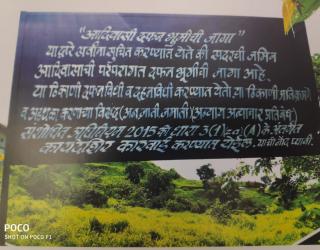 "आदिवासी दफन भूमीची जागा"
याद्वारे सर्वांना सुचित करण्यात येते की सदरची जमिन
आदिवासांची परंपरागत दफन भूमीची जागा आहे.
या ठिकाणी दफनविधी व दहनविधी करण्यात येतो. या ठिकाणी
व अडथळा करणाऱ्या विरुद्ध (अनु.जाती जमाती) (अन्याय अत्याचार प्रतिबंध)
संशोधित अधिनियम 2015 की धारा 3(1) (A) के अंतर्गत
कायदेशिर कारवाई करण्यात येईल. याची नोंद घ्यावी.
POCO
SHOT ON POCO F1